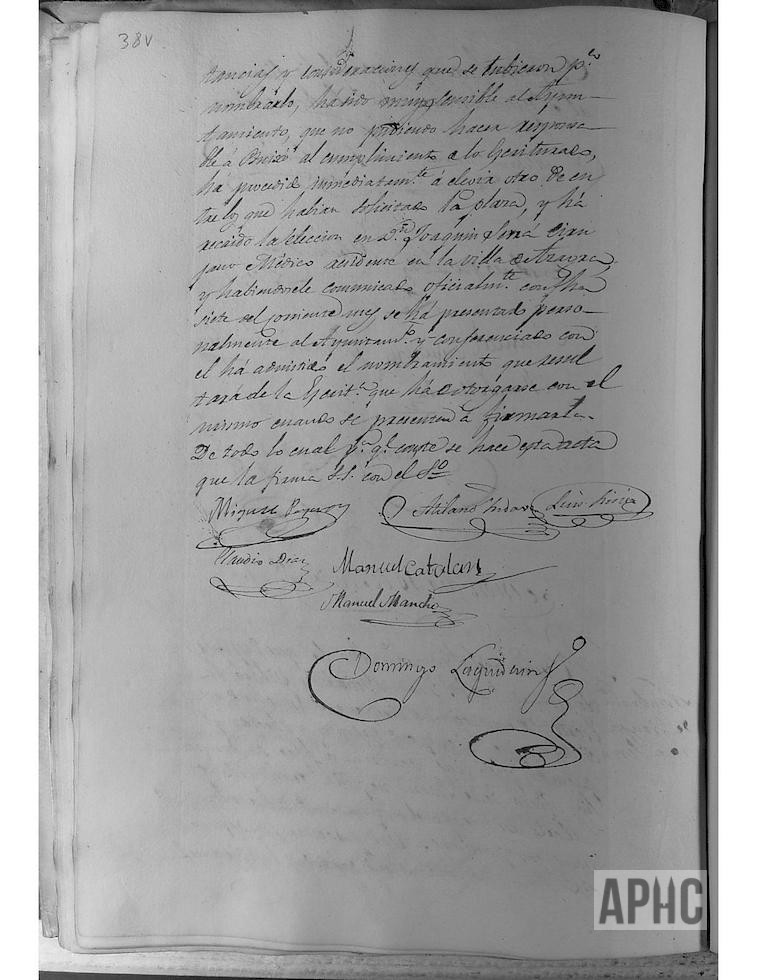 38v
tancias y consideraciones que se tubieron p.ª
nombrarlo, há sido muy sensible al Ayun-
tamiento, que no pudiendo hacer responsa-
ble á al cumplimiento de lo Escriturado,
há procedido inmediatam.te á elegir otro de en
tre los que habian solicitado la plaza, y há
recaido la eleccion en D.n Joaquin Serrá Ciru
jano Médico residente en la villa de
y habiendosele comunicado oficialm.te con fha
siete del corriente mes se há presentado perso-
nalmente al Ayuntam.to y conferenciado con
el há admitido el nombramiento que resul
tará de la Escrit.ª que há de otorgarse con el
mismo cuando se presente á firmarla.
De todo lo cual p.ª q.e conste se hace esta acta
que la firma S.S. con el S.o
Miguel
Atilano Luis
Claudio Diaz
Manuel Catalan
Manuel Mancho
Domingo
APHC